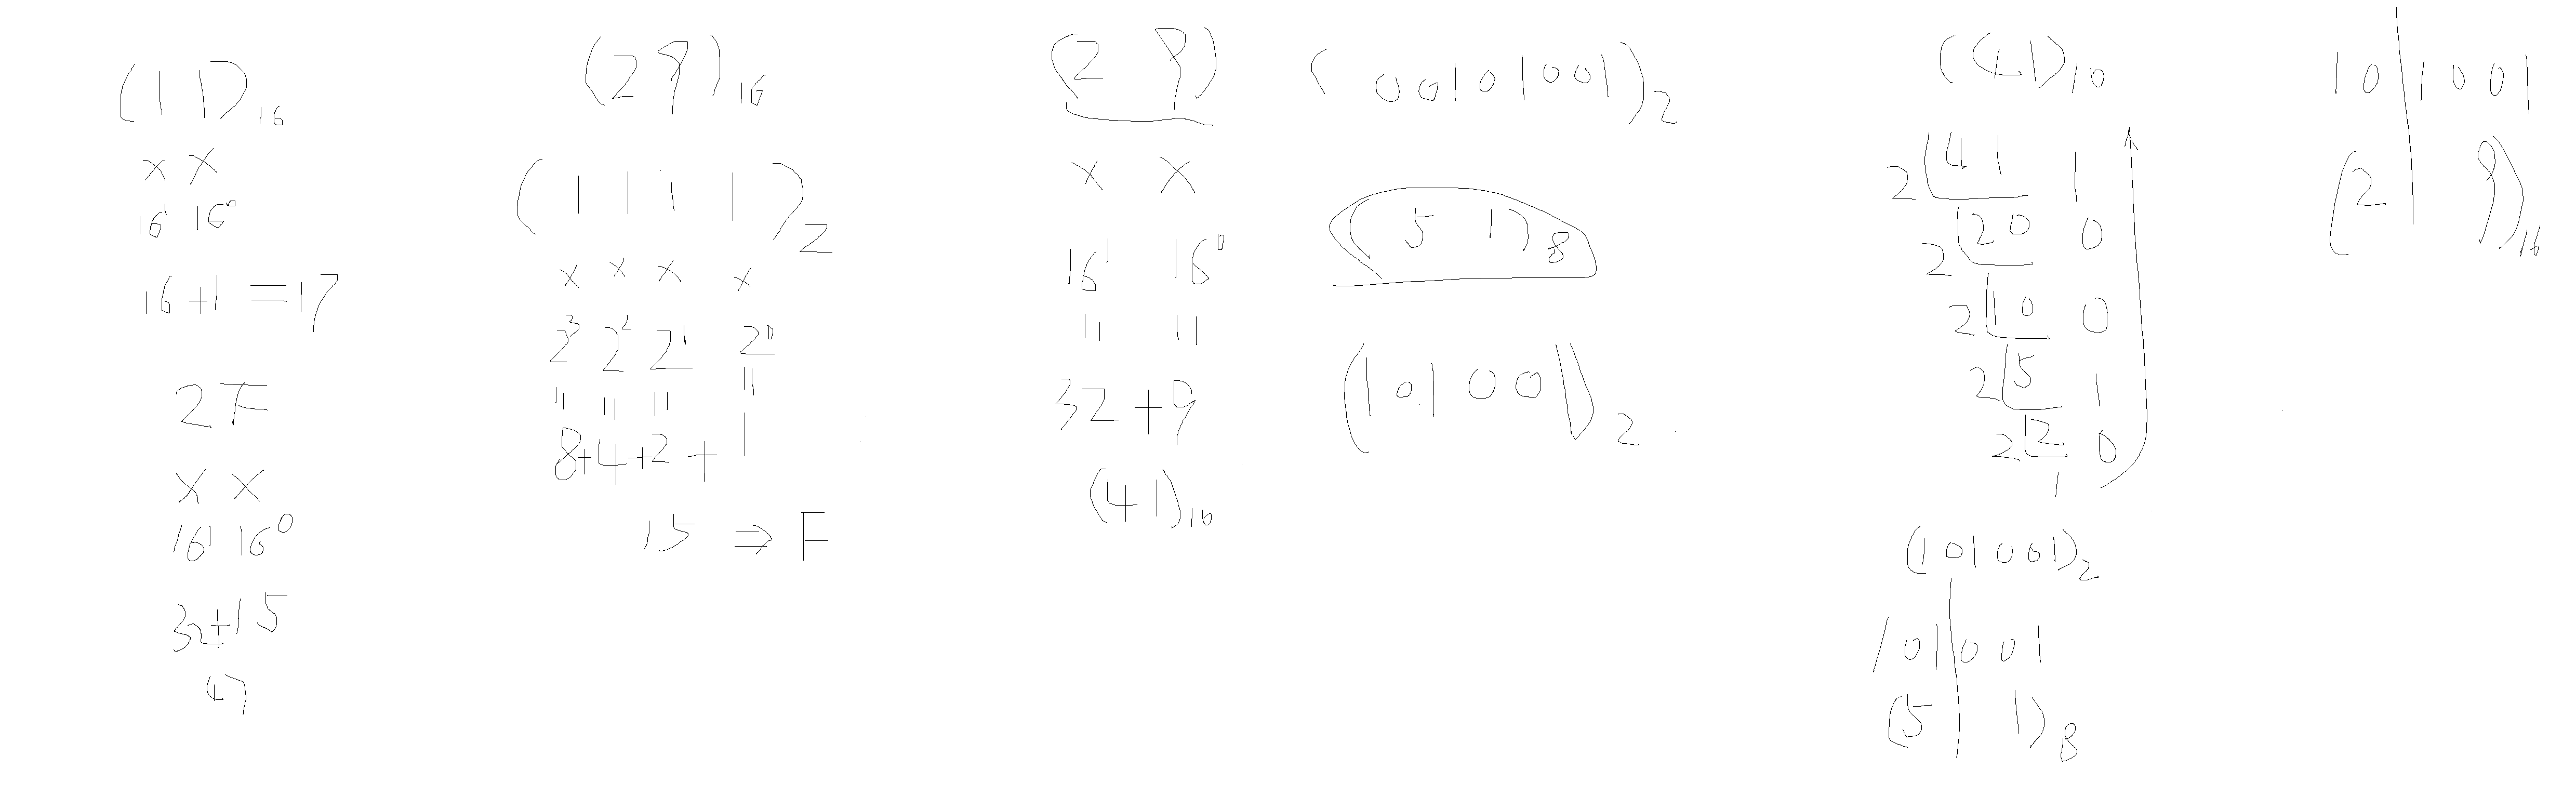 (11)16
x x
16^1 16^0
16+1=17
2F
x x
16^1 16^0
32+15
47
(29)16
(1111)2
x x x x
2^3 2^2 2^1 2^0
" " " "
8+4+2+1
15 ⇒ F
(29)
x x
16^1 16^0
" "
32+9
(41)10
(00101001)2
(51)8
(101001)2
(41)10
2 41 1
2 20 0
2 10 0
2 5 1
2 2 0
1
(101001)2
101|001
(5|1)8
10|1001
(2|9)16